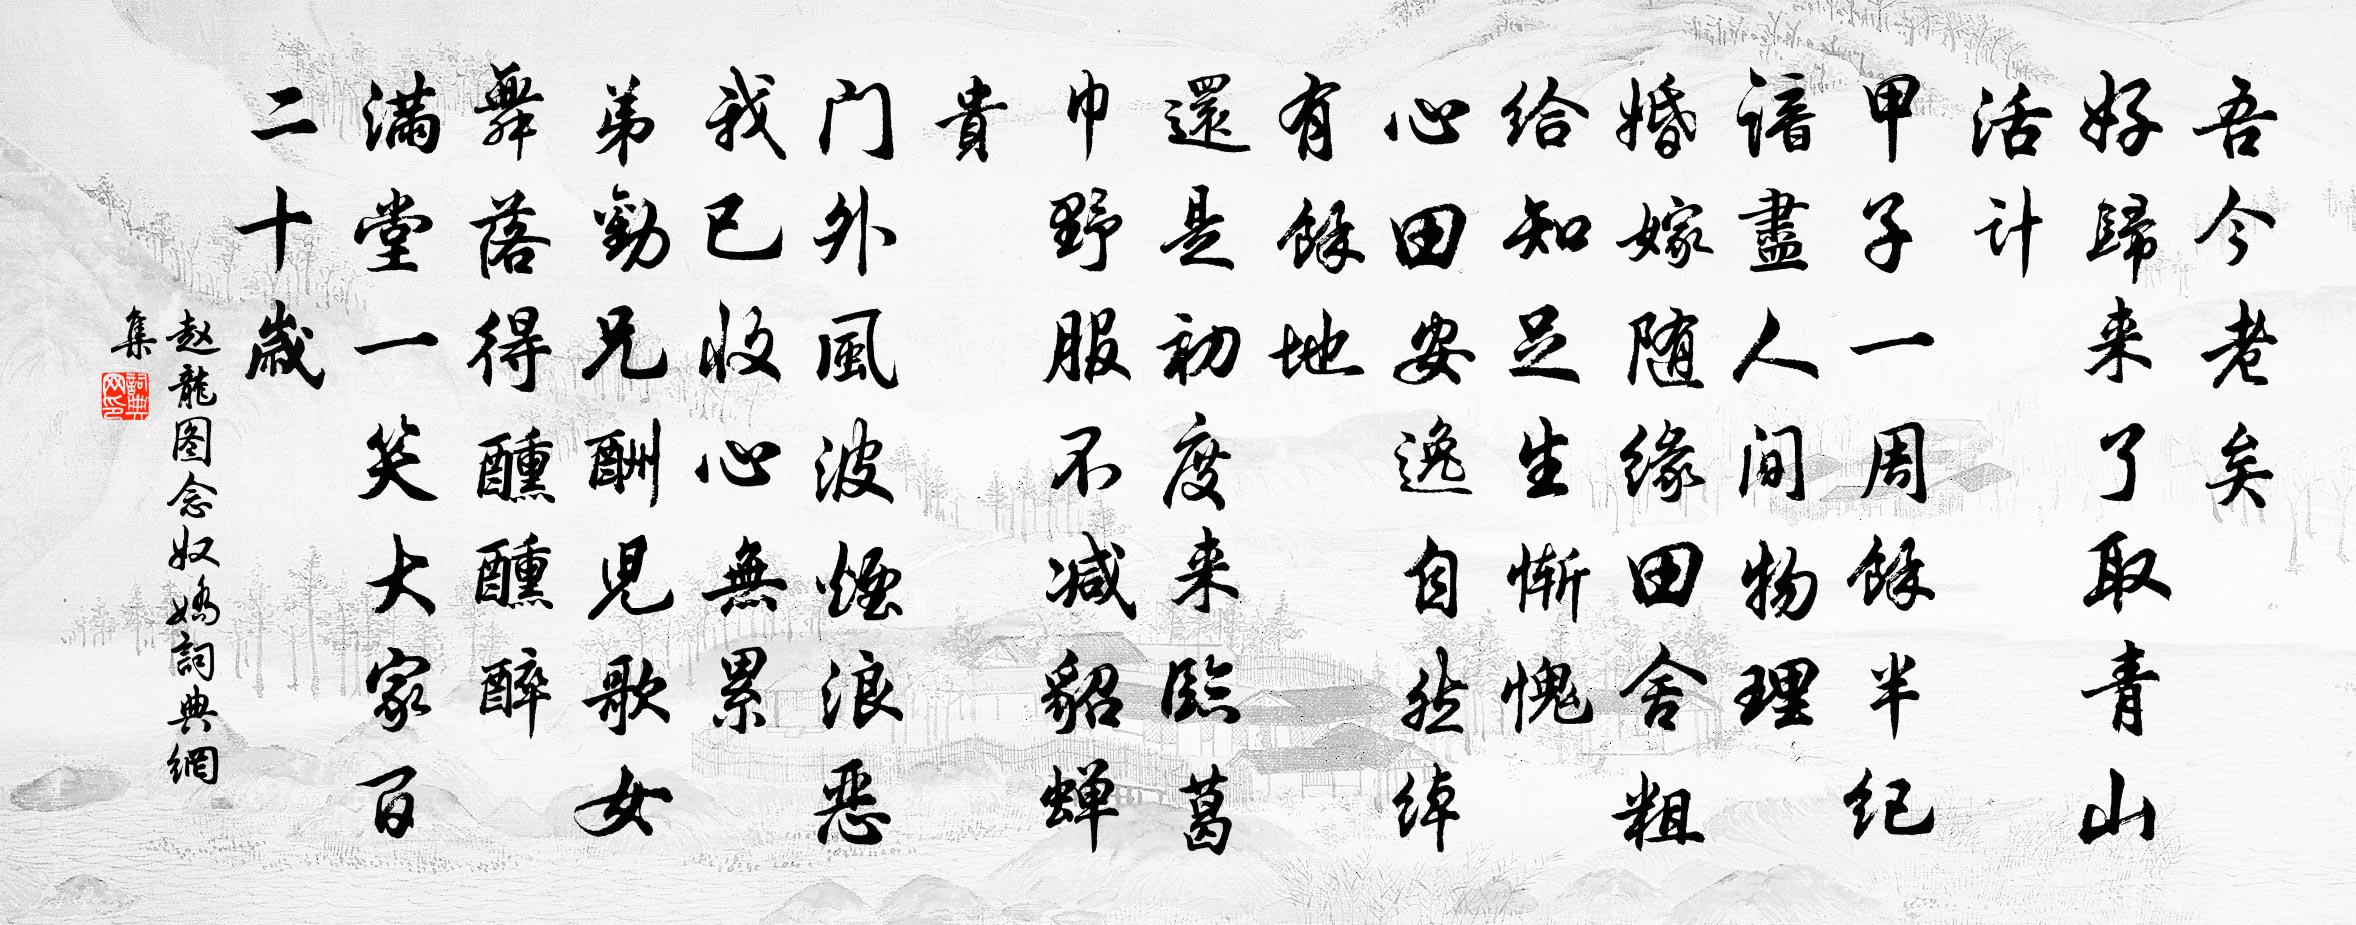 吾今老矣
好歸来了取青山
活计
甲子一周餘半纪
谙盡人间物理
婚嫁随缘田舍粗
给知足生惭愧
心田安逸自然绰
有餘地
還是初度来臨葛
巾野服不减貂蝉
貴
门外風波煙浪恶
我已收心無累
弟勸兄酬児歌女
舞落得醺醺醉
满堂一笑大家百
二十歲
赵龍图念奴嬌詞典網
集
詞典
网印